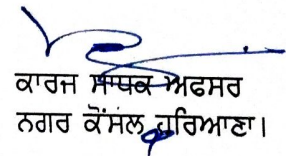 ਕਾਰਜ ਸਾਧਕ ਅਫਸਰ
ਨਗਰ ਕੌਂਸਲ ਹਰਿਆਣਾ।